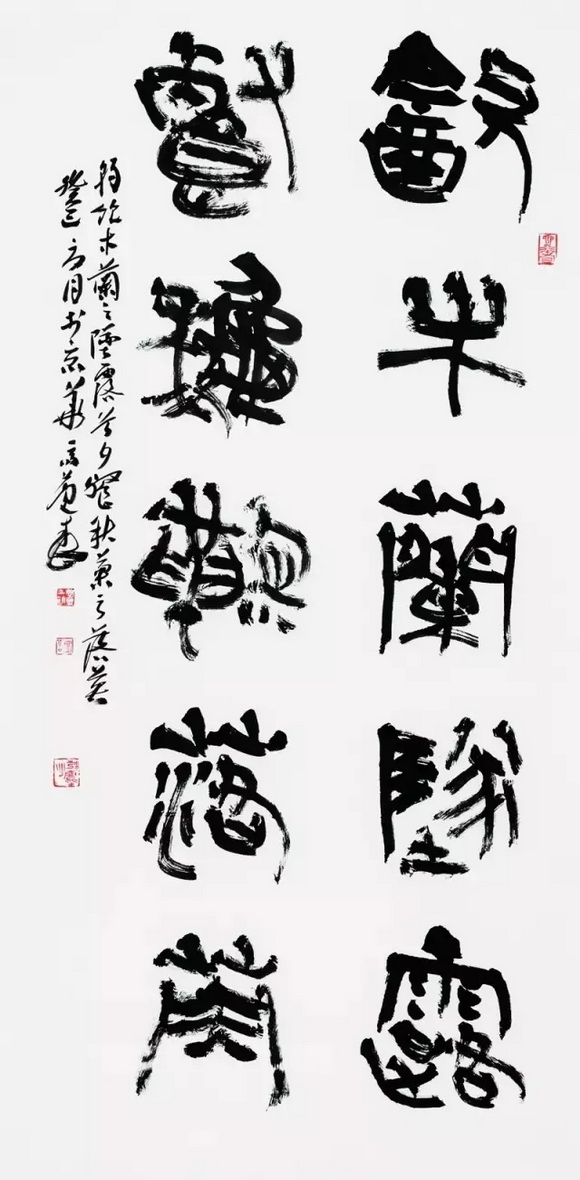 飲木蘭墜露
餐秋菊落英
朝飲木蘭之墜露兮夕餐秋菊之落英
癸巳月书京華